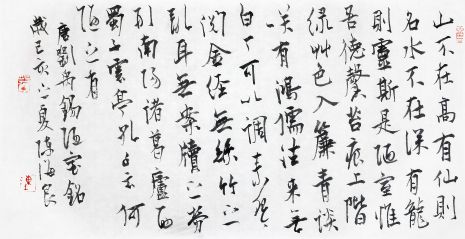 山不在高有仙則
名水不在深有龍
則靈斯是陋室惟
吾德馨苔痕上階
綠艸色入簾青談
咲有鴻儒往來無
白丁可以調素琴
閱金經無絲竹之
亂耳無案牘之勞
形南陽諸葛廬西
蜀子雲亭孔子云何
陋之有
唐劉禹錫陋室銘
歲己亥之夏陳海良